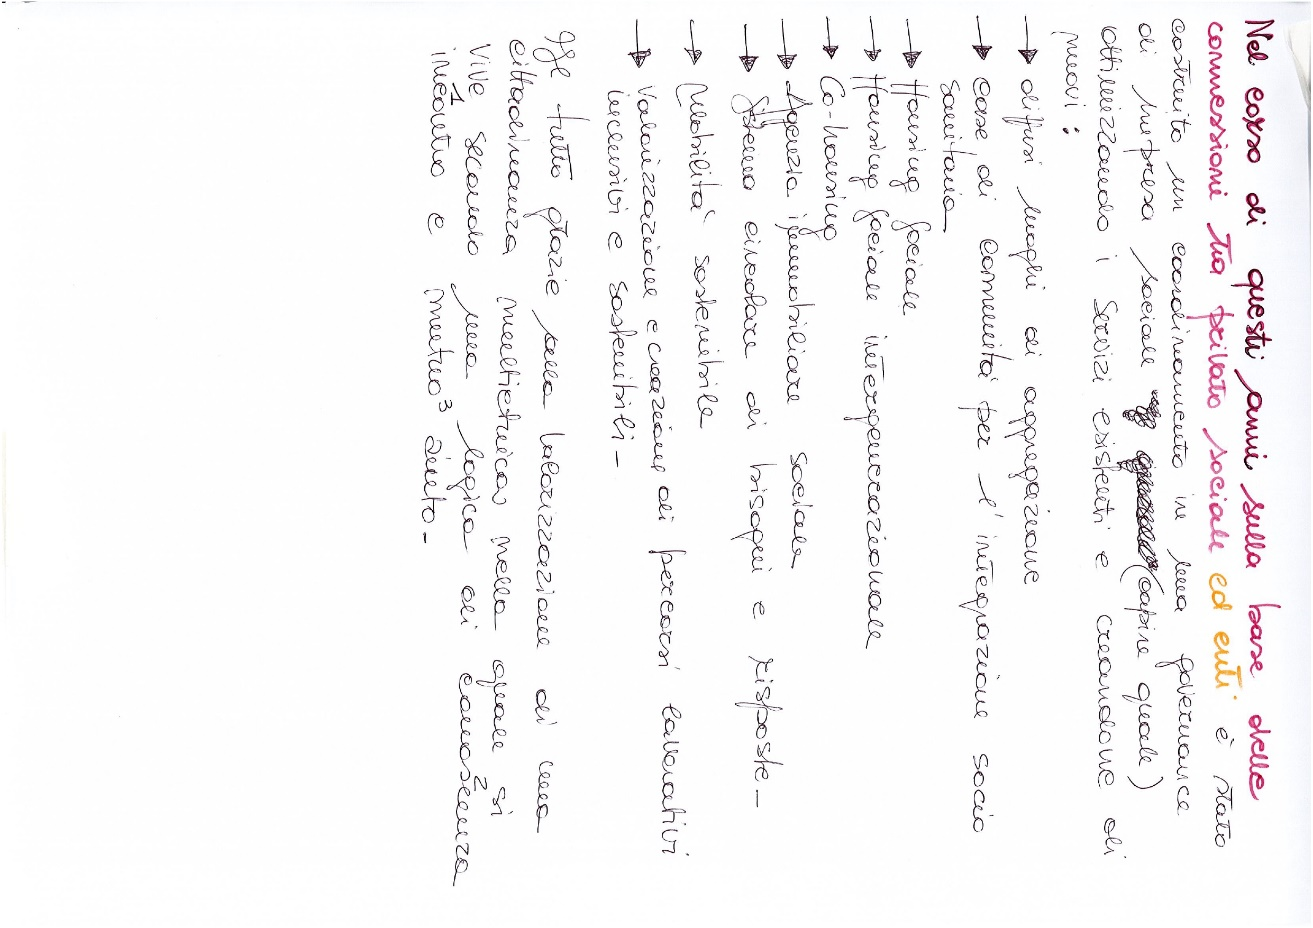 Nel corso di questi anni sulla base delle
connessioni tra privato sociale ed enti è stato
costruito un coordinamento in una governance
di impresa sociale (capire quale)
ottimizzando i servizi esistenti e creandone di
nuovi:
→ diffusi luoghi di aggregazione
→ case di comunità per l'integrazione socio
sanitaria
→ Housing sociale
→ Housing sociale intergenerazionale
→ Co-housing
→ Agenzia immobiliare sociale
→ Sistema circolare di bisogni e risposte -
→ Mobilità sostenibile
→ Valorizzazione e creazione di percorsi lavorativi
inclusivi e sostenibili -
Il tutto grazie sulla valorizzazione di una
cittadinanza multietnica nella quale si
vive secondo una logica di conoscenza 2
incontro 1 e mutuo 3 aiuto -